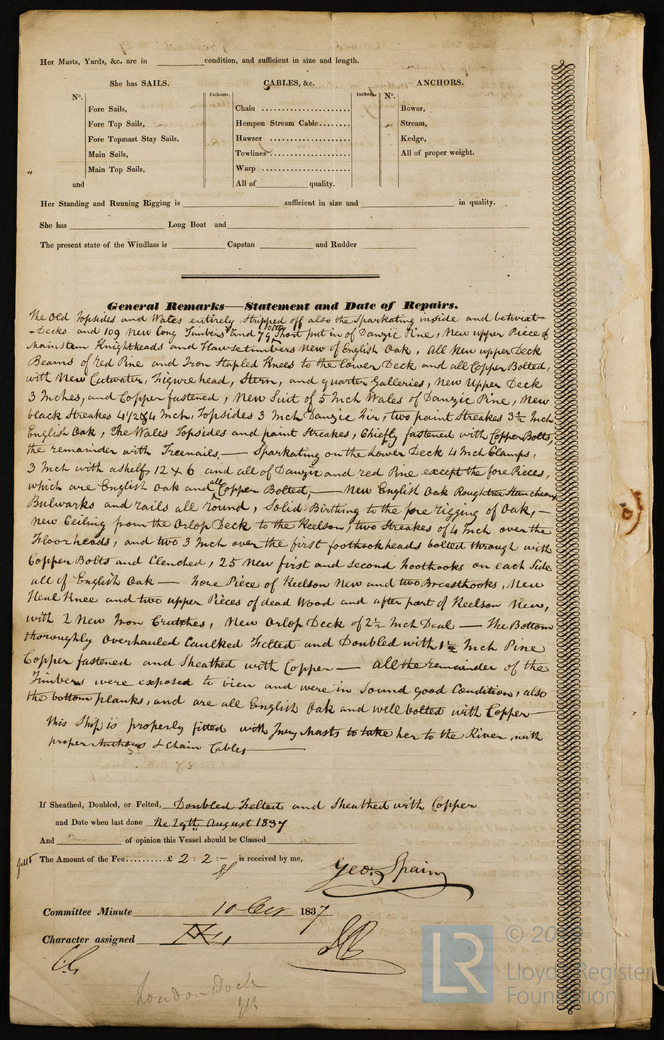 Her Masts, Yards, &c. are in condition, and sufficient in size and length.
She has SAILS. CABLES, &c. ANCHORS.
N°. Fathoms. Inches. N°.
Fore Sails, Chain Bower,
Fore Top Sails, Hempen Stream Cable Stream,
Fore Topmast Stay Sails, Hawser Kedge,
Main Sails, Towlines All of proper weight.
Main Top Sails, Warp
and All of quality.
Her Standing and Running Rigging is sufficient in size and in quality.
She has Long Boat and
The present state of the Windlass is Capstan and Rudder
General Remarks—Statement and Date of Repairs.
The Old Topsides and Wales entirely stripped off also the Sparkating inside and betwixt
-Decks and 109 New Long Timbers and 79 Short put in of Danzic Pine, New upper Piece of
Mainstem Knightheads and Hawsetimbers New of English Oak, All New upper Deck
Beams of red Pine and Iron Stapled Knees to the Lower Deck and all Copper Bolted,
with New Cutwater, Figurehead, Stern, and quarter Galleries, New Upper Deck
3 Inches, and Copper fastened, New Suit of 5 Inch Wales of Danzic Pine, New
black Streakes 4 1/2 & 4 Inch, Topsides 3 Inch Danzic Fir, two paint Streakes 3 1/2 Inch
English Oak, The Wales Topsides and paint Streakes, Chiefly fastened with Copper Bolts,
the remainder with Treenails, — Sparkating on the Lower Deck 4 Inch Clamps,
3 Inch with a shelf, 12 x 6 and all of Danzic and red Pine except the fore Pieces,
which are English Oak and all Copper Bolted, — New English Oak Roughtree Stanchions
Bulwarks and rails all round, Solid Birthing to the fore rigging of Oak, —
New Ceiling from the Orlop Deck to the Keelson, two Streakes of 4 Inch over the
Floorheads, and two 3 Inch over the first foothookheads bolted through with
Copper Bolts and Clenched, 25 New first and second foothooks on each Side
all of English Oak — Fore Piece of Keelson New and two Breasthooks, New
Heal Knee and two upper Pieces of dead Wood and after part of Keelson New,
with 2 New Iron Crutches, New Orlop Deck of 2 1/2 Inch Deal — The Bottom
thoroughly overhauled Caulked Felted and Doubled with 1 1/2 Inch Pine
Copper fastened and Sheathed with Copper — All the remainder of the
Timbers were exposed to view and were in Sound good Condition, also
the bottom planks, and are all English Oak and well bolted with Copper
this Ship is properly fitted with Jury Masts to take her to the River, with
proper Anchors & Chain Cables
If Sheathed, Doubled, or Felted, Doubled Felted and Sheathed with Copper
and Date when last done The 29th August 1837
And of opinion this Vessel should be Classed
The Amount of the Fee £ 2 : 2 : - is received by me,
Geo. Spain
Committee Minute 10 Oct 1837
Character assigned
London Dock
LR
© 20
Lloyd's Register
Foundation